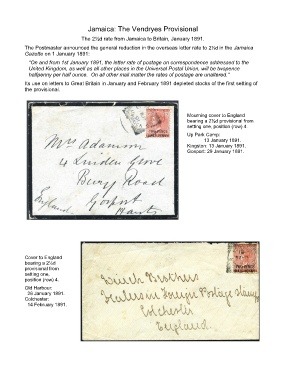 Jamaica: The Vendryes Provisional
The 2½d rate from Jamaica to Britain, January 1891.
The Postmaster announced the general reduction in the overseas letter rate to 2½d in the Jamaica
Gazette on 1 January 1891:
"On and from 1st January 1891, the letter rate of postage on correspondence addressed to the
United Kingdom, as well as all other places in the Universal Postal Union, will be twopence
halfpenny per half ounce. On all other mail matter the rates of postage are unaltered."
Its use on letters to Great Britain in January and February 1891 depleted stocks of the first setting of
the provisional.
Mourning cover to England
bearing a 2½d provisional from
setting one, position (row) 4.
Up Park Camp:
13 January 1891.
Kingston: 13 January 1891.
Gosport: 29 January 1891.
Mrs Adamson
4 Linden Grove
Bury Road
Gosport
Hants
England
Cover to England
bearing a 2½d
provisional from
setting one,
position (row) 4.
Old Harbour:
26 January 1891.
Colchester:
14 February 1891.
Brothers
Foreign Postage Stamps
Colchester
England